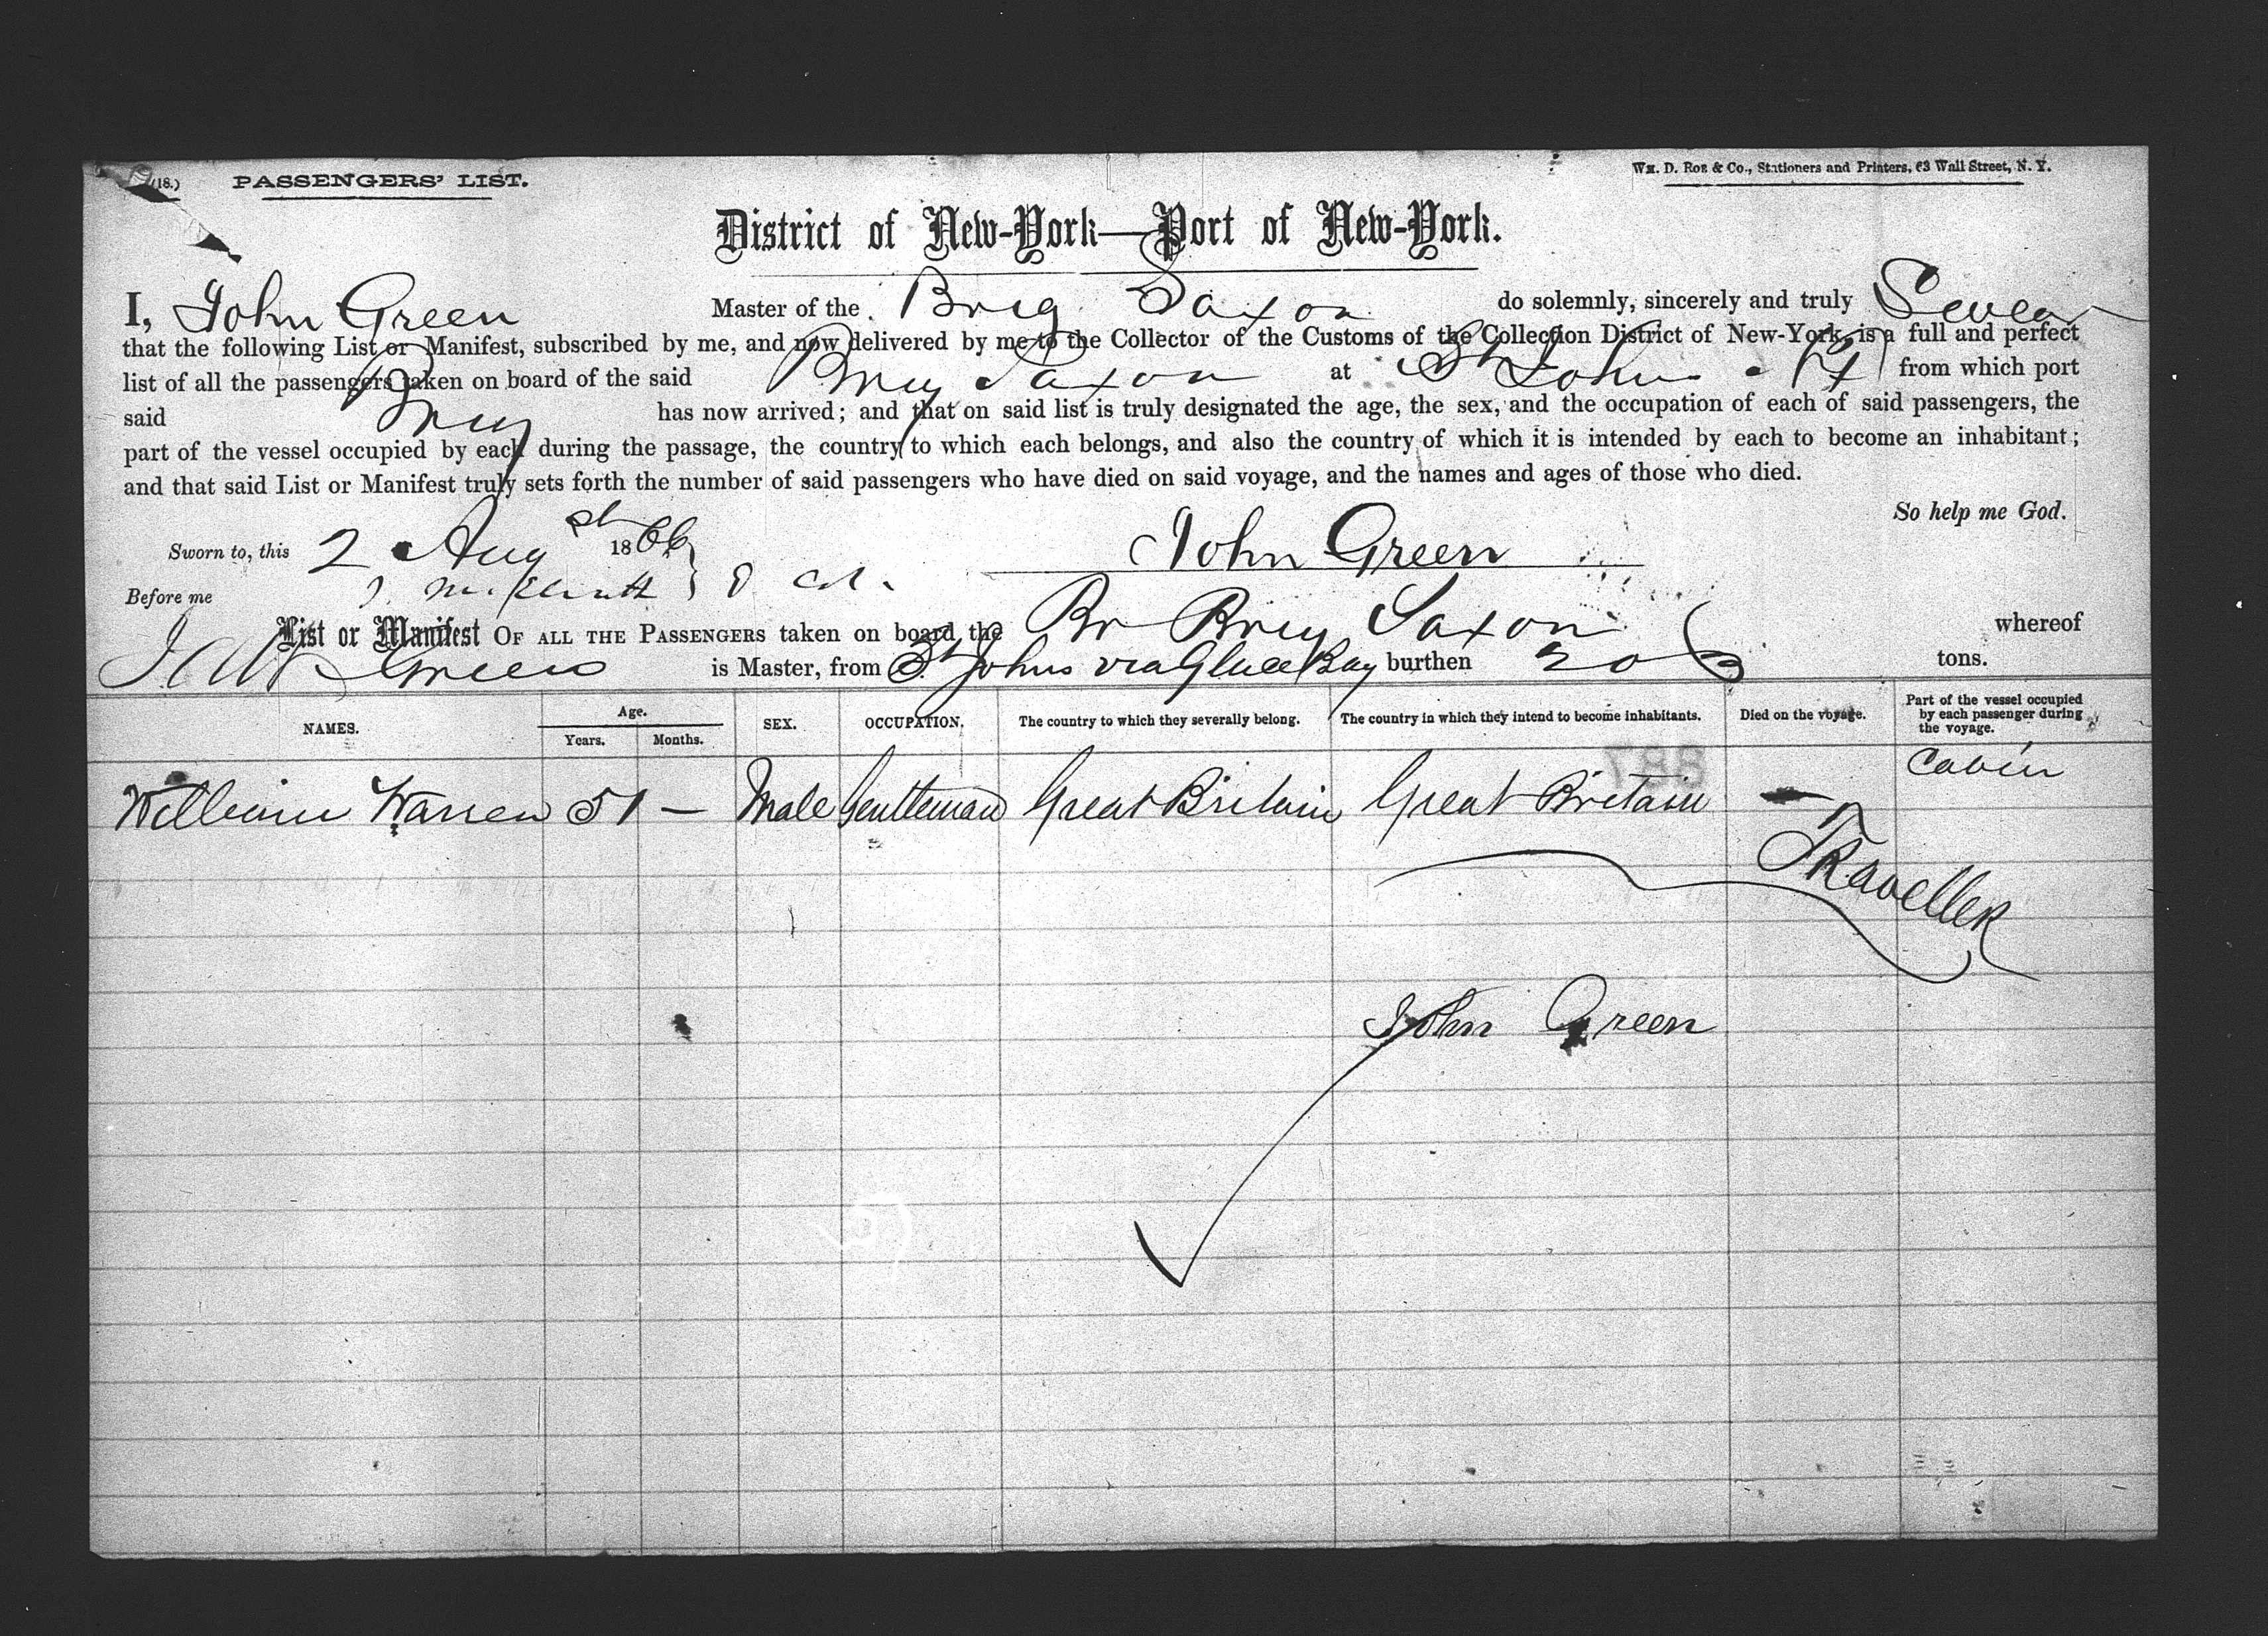 (18.) PASSENGERS' LIST.
Wm. D. Roe & Co., Stationers and Printers, 63 Wall Street, N. Y.
District of New-York—Port of New-York.
I, John Green Master of the Brig Saxon do solemnly, sincerely and truly Swear
that the following List or Manifest, subscribed by me, and now delivered by me to the Collector of the Customs of the Collection District of New-York, is a full and perfect
list of all the passengers taken on board of the said Brig Saxon at St Johns from which port
said Brig has now arrived; and that on said list is truly designated the age, the sex, and the occupation of each of said passengers, the
part of the vessel occupied by each during the passage, the country to which each belongs, and also the country of which it is intended by each to become an inhabitant;
and that said List or Manifest truly sets forth the number of said passengers who have died on said voyage, and the names and ages of those who died.
So help me God.
Sworn to, this 2 Augst 1866 John Green
Before me
List or Manifest OF ALL THE PASSENGERS taken on board the Br Brig Saxon whereof
Green is Master, from St Johns via Glace Bay burthen 206 tons.
NAMES. Age. Years. Months. SEX. OCCUPATION. The country to which they severally belong. The country in which they intend to become inhabitants. Died on the voyage. Part of the vessel occupied by each passenger during the voyage.
887
Cabin
William Warren 51 — Male Gentleman Great Britain Great Britain —
Traveller
John Green